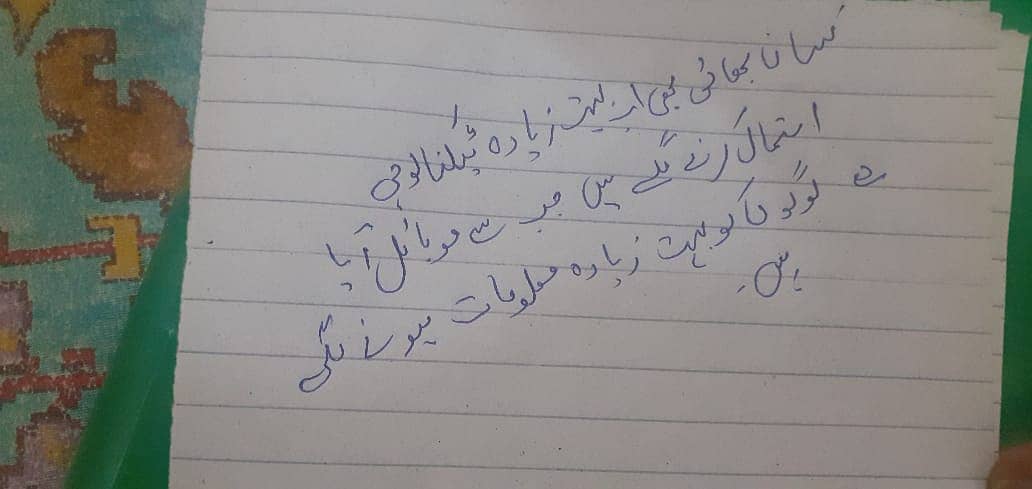 کسان بھائی بھی اب بہت زیادہ ٹیکنالوجی
استمال کرنے لگے ہیں جب سے موبائل آیا
ہے لوگو کا کو بہت زیادہ معلومات ہونے لگی
ہیں